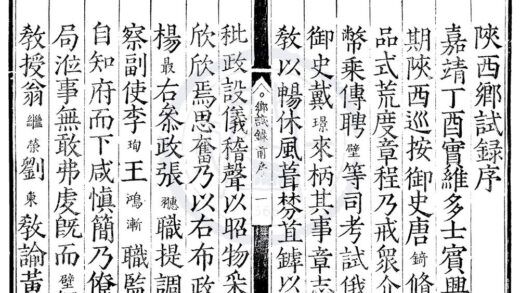 陝西鄉試錄序
嘉靖丁酉實維多士賓興
期陝西巡按御史唐錡脩
品式荒度章程乃戒衆介
幣乘傳聘璧等司考試俄
御史戴璟來柄其事章志
敎以暢休風葺棼苴罅以
鄉試錄前序 一
秕政設儀稽聲以昭物采
欣欣焉思奮乃以右布政
楊最右叅政張𩆍職提調
察副使李珣王鴻漸職監
自知府而下咸慎簡乃僚
局涖事無敢弗虔旣而璧
敎授翁繼榮劉東敎諭黃